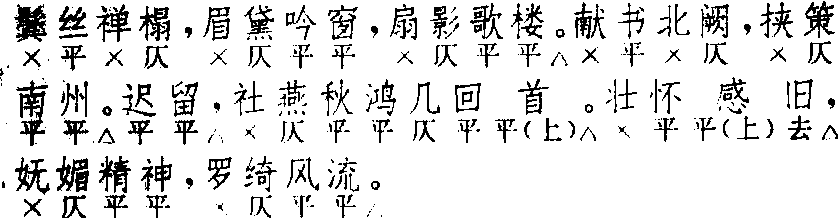 鬓丝禅榻，眉黛吟窗，扇影歌楼。献书北阙，挟策
× 平 × 仄 × 仄 平 平 × 仄 平 平△× 平 × 仄 × 仄
南州。迟留，社燕秋鸿几回首。壮怀感旧，
平 平△平 平△× 仄 平 平 仄 平 平(上)△× 平 平(上)去△
妩媚精神，罗绮风流。
× 仄 平 平 × 仄 平 平△